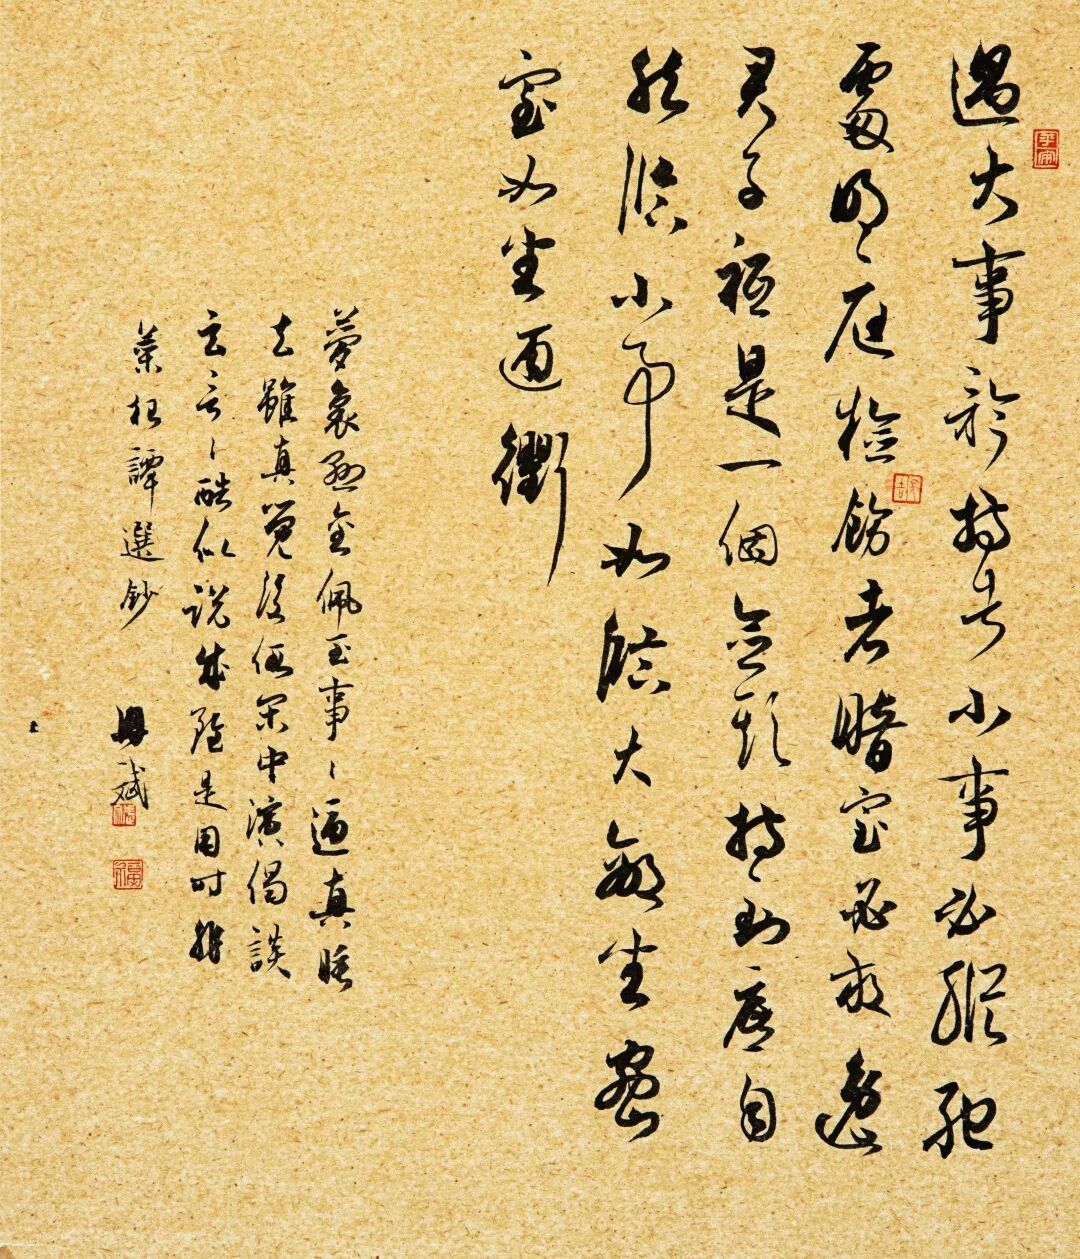 遇大事矜持者小事必縱弛
處明庭檢飭者暗室必放逸
君子祗是一個念頭持到底自
然臨小事如臨大敵坐密
室如坐通衢
夢裏懸金佩玉事〻逼真睡
去雖真覺後假閑中演偈談
玄言〻酷似說來雖是用時非
菜根譚選鈔